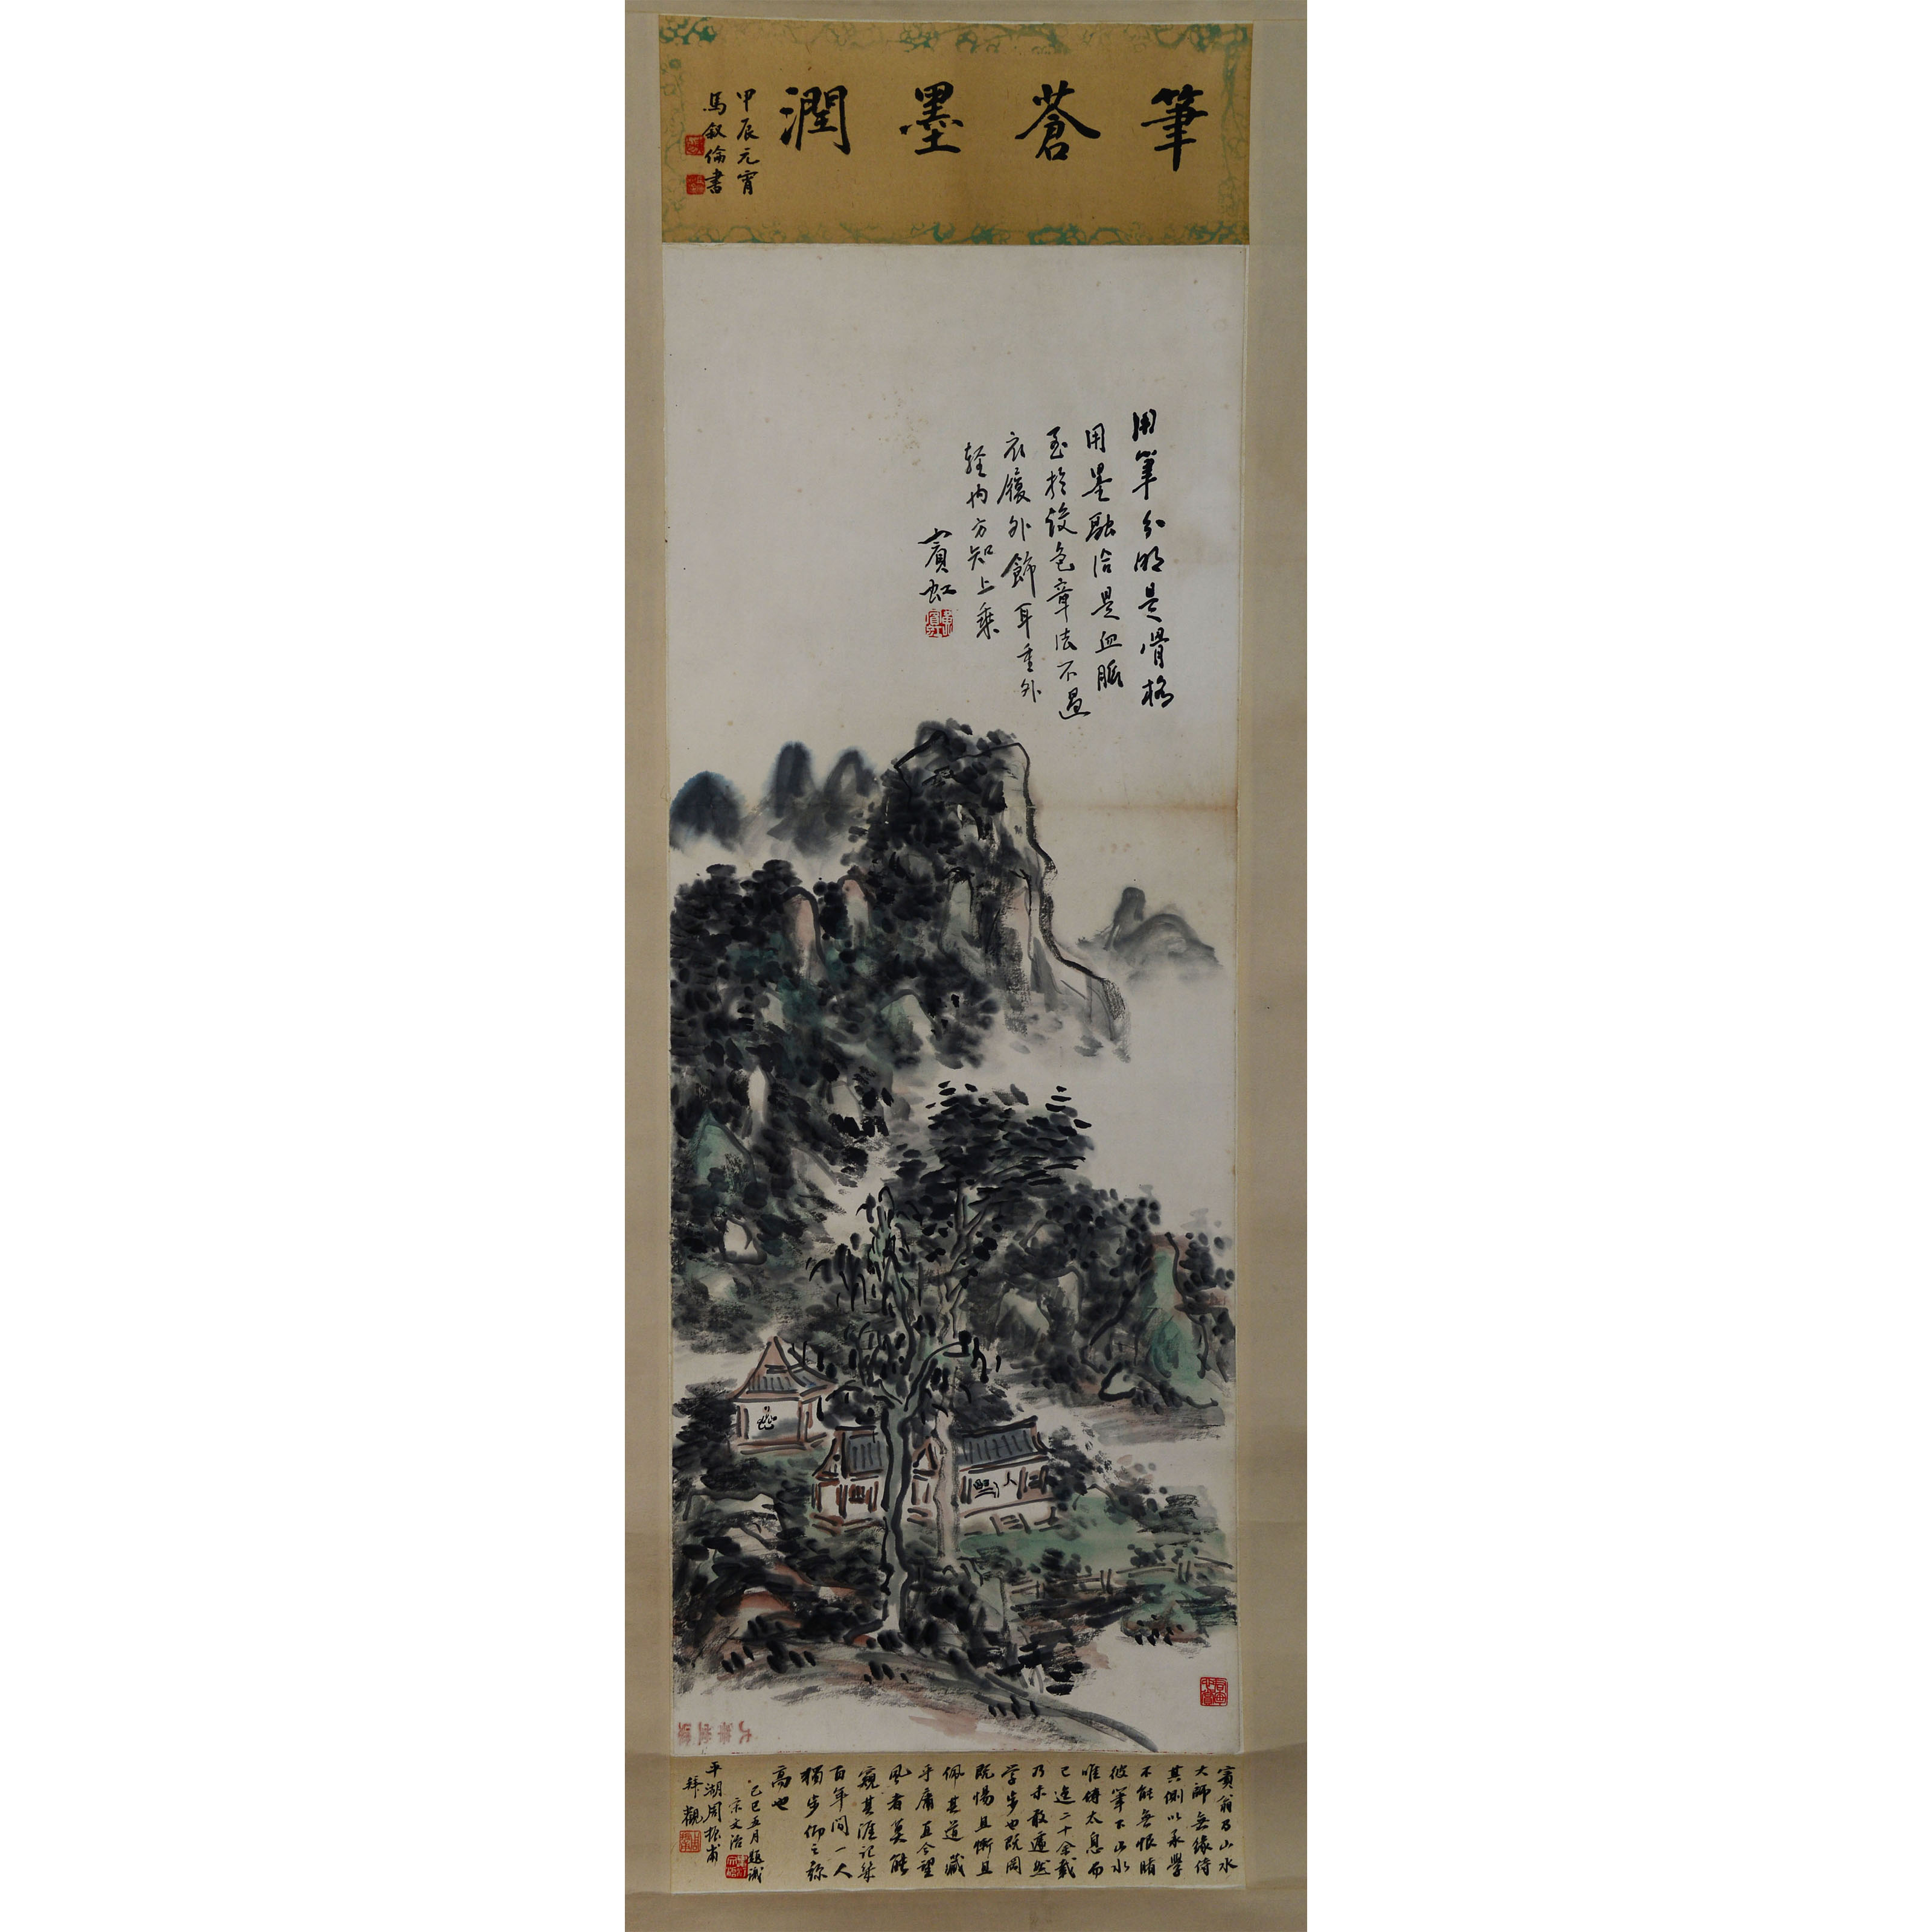 筆蒼墨潤
甲辰元宵
馬叙倫書
用筆分明是骨格
用墨融洽是血脈
至於設色章法不過
衣履外飾耳重外
轻内方知上乘
賓虹
賓翁乃山水
大師無緣侍
其側以承學
不能無恨睹
彼筆下山水
唯傳太息而
已迄二十余載
乃未敢遽然
学步也既罔
既惕且慚且
佩其道藏
乎庸且今望
風者莫能
窺其涯記乘
百年間一人
獨步仰之弥
高也
己巳五月題識
宋文治
平湖周振甫
拜觀